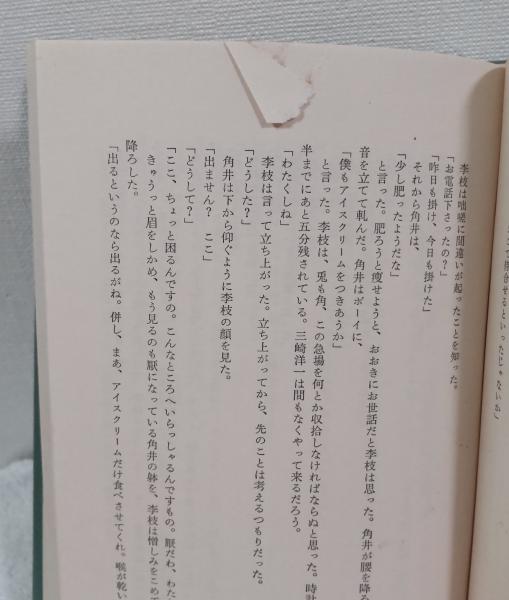 李枝は咄嗟に間違いが起ったことを知った。
「お電話下さったの？」
「昨日も掛け、今日も掛けた」
それから角井は、
「少し肥ったようだな」
と言った。肥ろうと瘦せようと、おおきにお世話だと李枝は思った。角井が腰を降ろ
音を立てて軋んだ。角井はボーイに、
「僕もアイスクリームをつきあうか」
と言った。李枝は、兎も角、この急場を何とか収拾しなければならぬと思った。時計
半までにあと五分残されている。三崎洋一は間もなくやって来るだろう。
「わたくしね」
李枝は言って立ち上がった。立ち上がってから、先のことは考えるつもりだった。
「どうした？」
角井は下から仰ぐように李枝の顔を見た。
「出ません？　ここ」
「どうして？」
「ここ、ちょっと困るんですの。こんなところへいらっしゃるんですもの。厭だわ、わた
きゅうっと眉をしかめ、もう見るのも厭になっている角井の躰を、李枝は憎しみをこめ
降ろした。
「出るというのなら出るがね。併し、まあ、アイスクリームだけ食べさせてくれ。喉が乾い